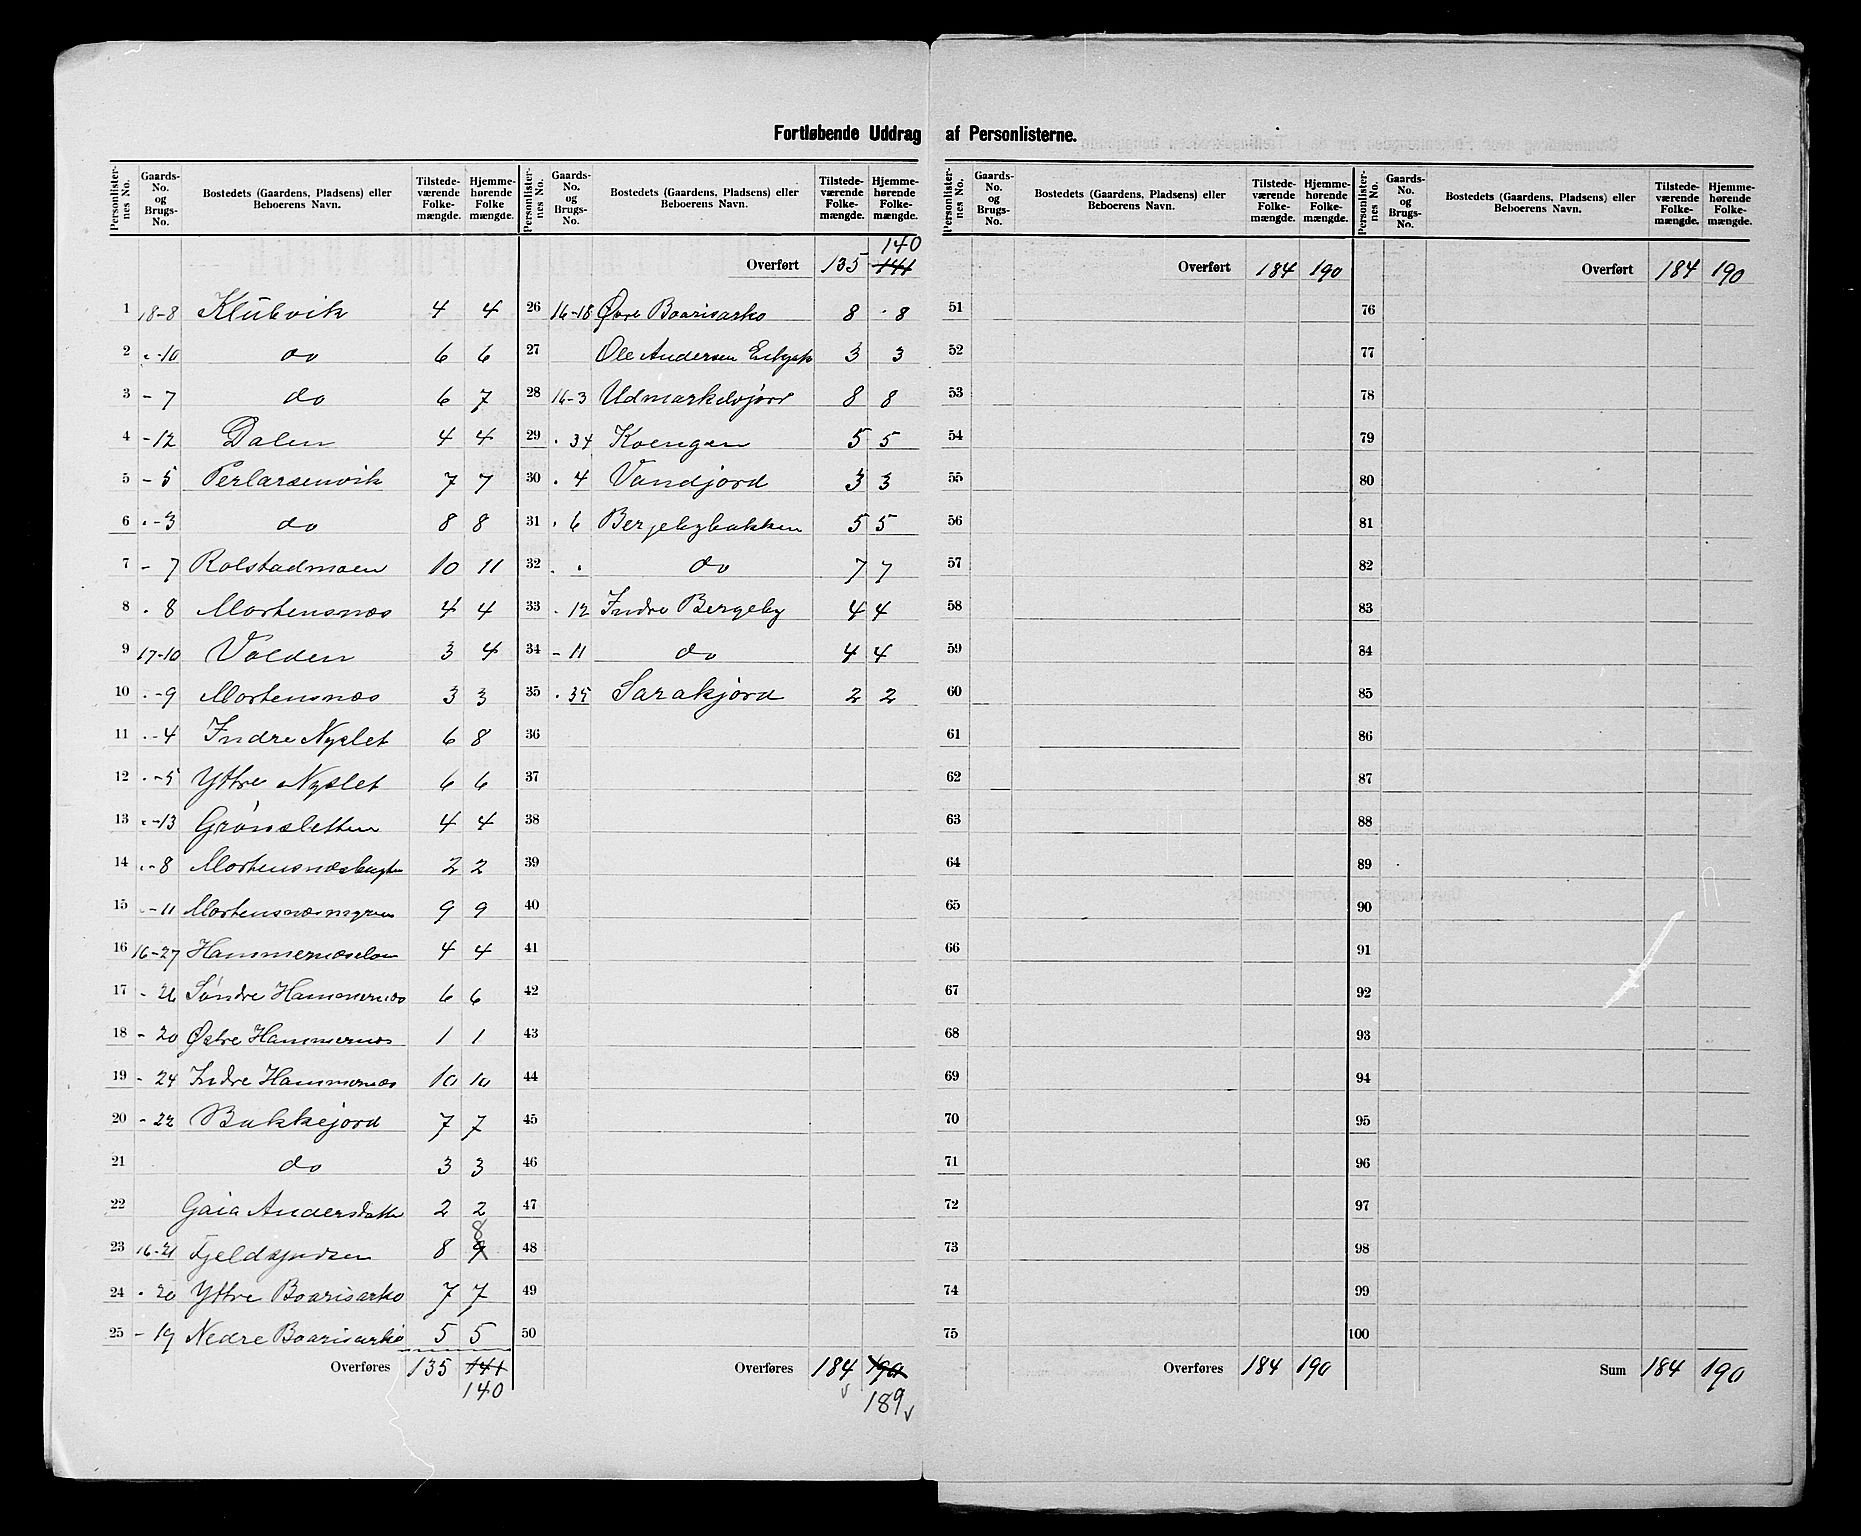 Fortløbende Uddrag af Personlisterne.
Personlister-nes No. | Gaards-No. og Brugs-No. | Bostedets (Gaardens, Pladsens) eller Beboerens Navn. | Tilstede-værende Folke-mængde. | Hjemme-hørende Folke mængde.
1 18-8 Klubvik 4 4
2 "-10 do 6 6
3 -7 do 6 7
4 -12 Dalen 4 4
5 -5 Perlarsenvik 7 7
6 "-3 do 8 8
7 -7 Rolstadmoen 10 11
8 . 8 Mortensnæs 4 4
9 17-10 Volden 3 4
10 .-9 Mortensnæs 3 3
11 .-4 Indre Nyslet 6 8
12 .-5 Yttre Nyslet 6 6
13 "-13 Grønsletten 4 4
14 .-8 Mortensnæsbugten 2 2
15 .-11 Mortensnæsmyren 9 9
16 16-27 Hammernæselven 4 4
17 - 26 Søndre Hammernæs 6 6
18 - 20 Østre Hammernæs 1 1
19 - 24 Indre Hammernæs 10 10
20 - 22 Bakkejord 7 7
21 do 3 3
22 Gaia Andersdatter 2 2
23 16-21 8 9 8
24 . 20 Yttre Boarisarko 7 7
25 - 19 Nedre Boarisarko 5 5
Overføres 135 141
140
Personlister-nes No. | Gaards-No. og Brugs-No. | Bostedets (Gaardens, Pladsens) eller Beboerens Navn. | Tilstede-værende Folke-mængde. | Hjemme-hørende Folke-mængde.
140
Overført 135 141
26 16-18 Øvre Boarisarko 8 8
27 Ole Andersen 3 3
28 16-3 8 8
29 . 34 Kvengen 5 5
30 . 4 Vandjord 3 3
31 . 6 Bergebybakken 5 5
32 . . do 7 7
33 . 12 Indre Bergeby 4 4
34 - 11 do 4 4
35 . 35 Sarakjord 2 2
36
37
38
39
40
41
42
43
44
45
46
47
48
49
50
Overføres 184 190
189
Personlister-nes No. | Gaards-No. og Brugs-No. | Bostedets (Gaardens, Pladsens) eller Beboerens Navn. | Tilstede-værende Folke-mængde. | Hjemme-hørende Folke-mængde.
Overført 184 190
51
52
53
54
55
56
57
58
59
60
61
62
63
64
65
66
67
68
69
70
71
72
73
74
75
Overføres 184 190
Personlister-nes No. | Gaards-No. og Brugs-No. | Bostedets (Gaardens, Pladsens) eller Beboerens Navn. | Tilstede-værende Folke-mængde. | Hjemme-hørende Folke-mængde.
Overført 184 190
76
77
78
79
80
81
82
83
84
85
86
87
88
89
90
91
92
93
94
95
96
97
98
99
100
Sum 184 190